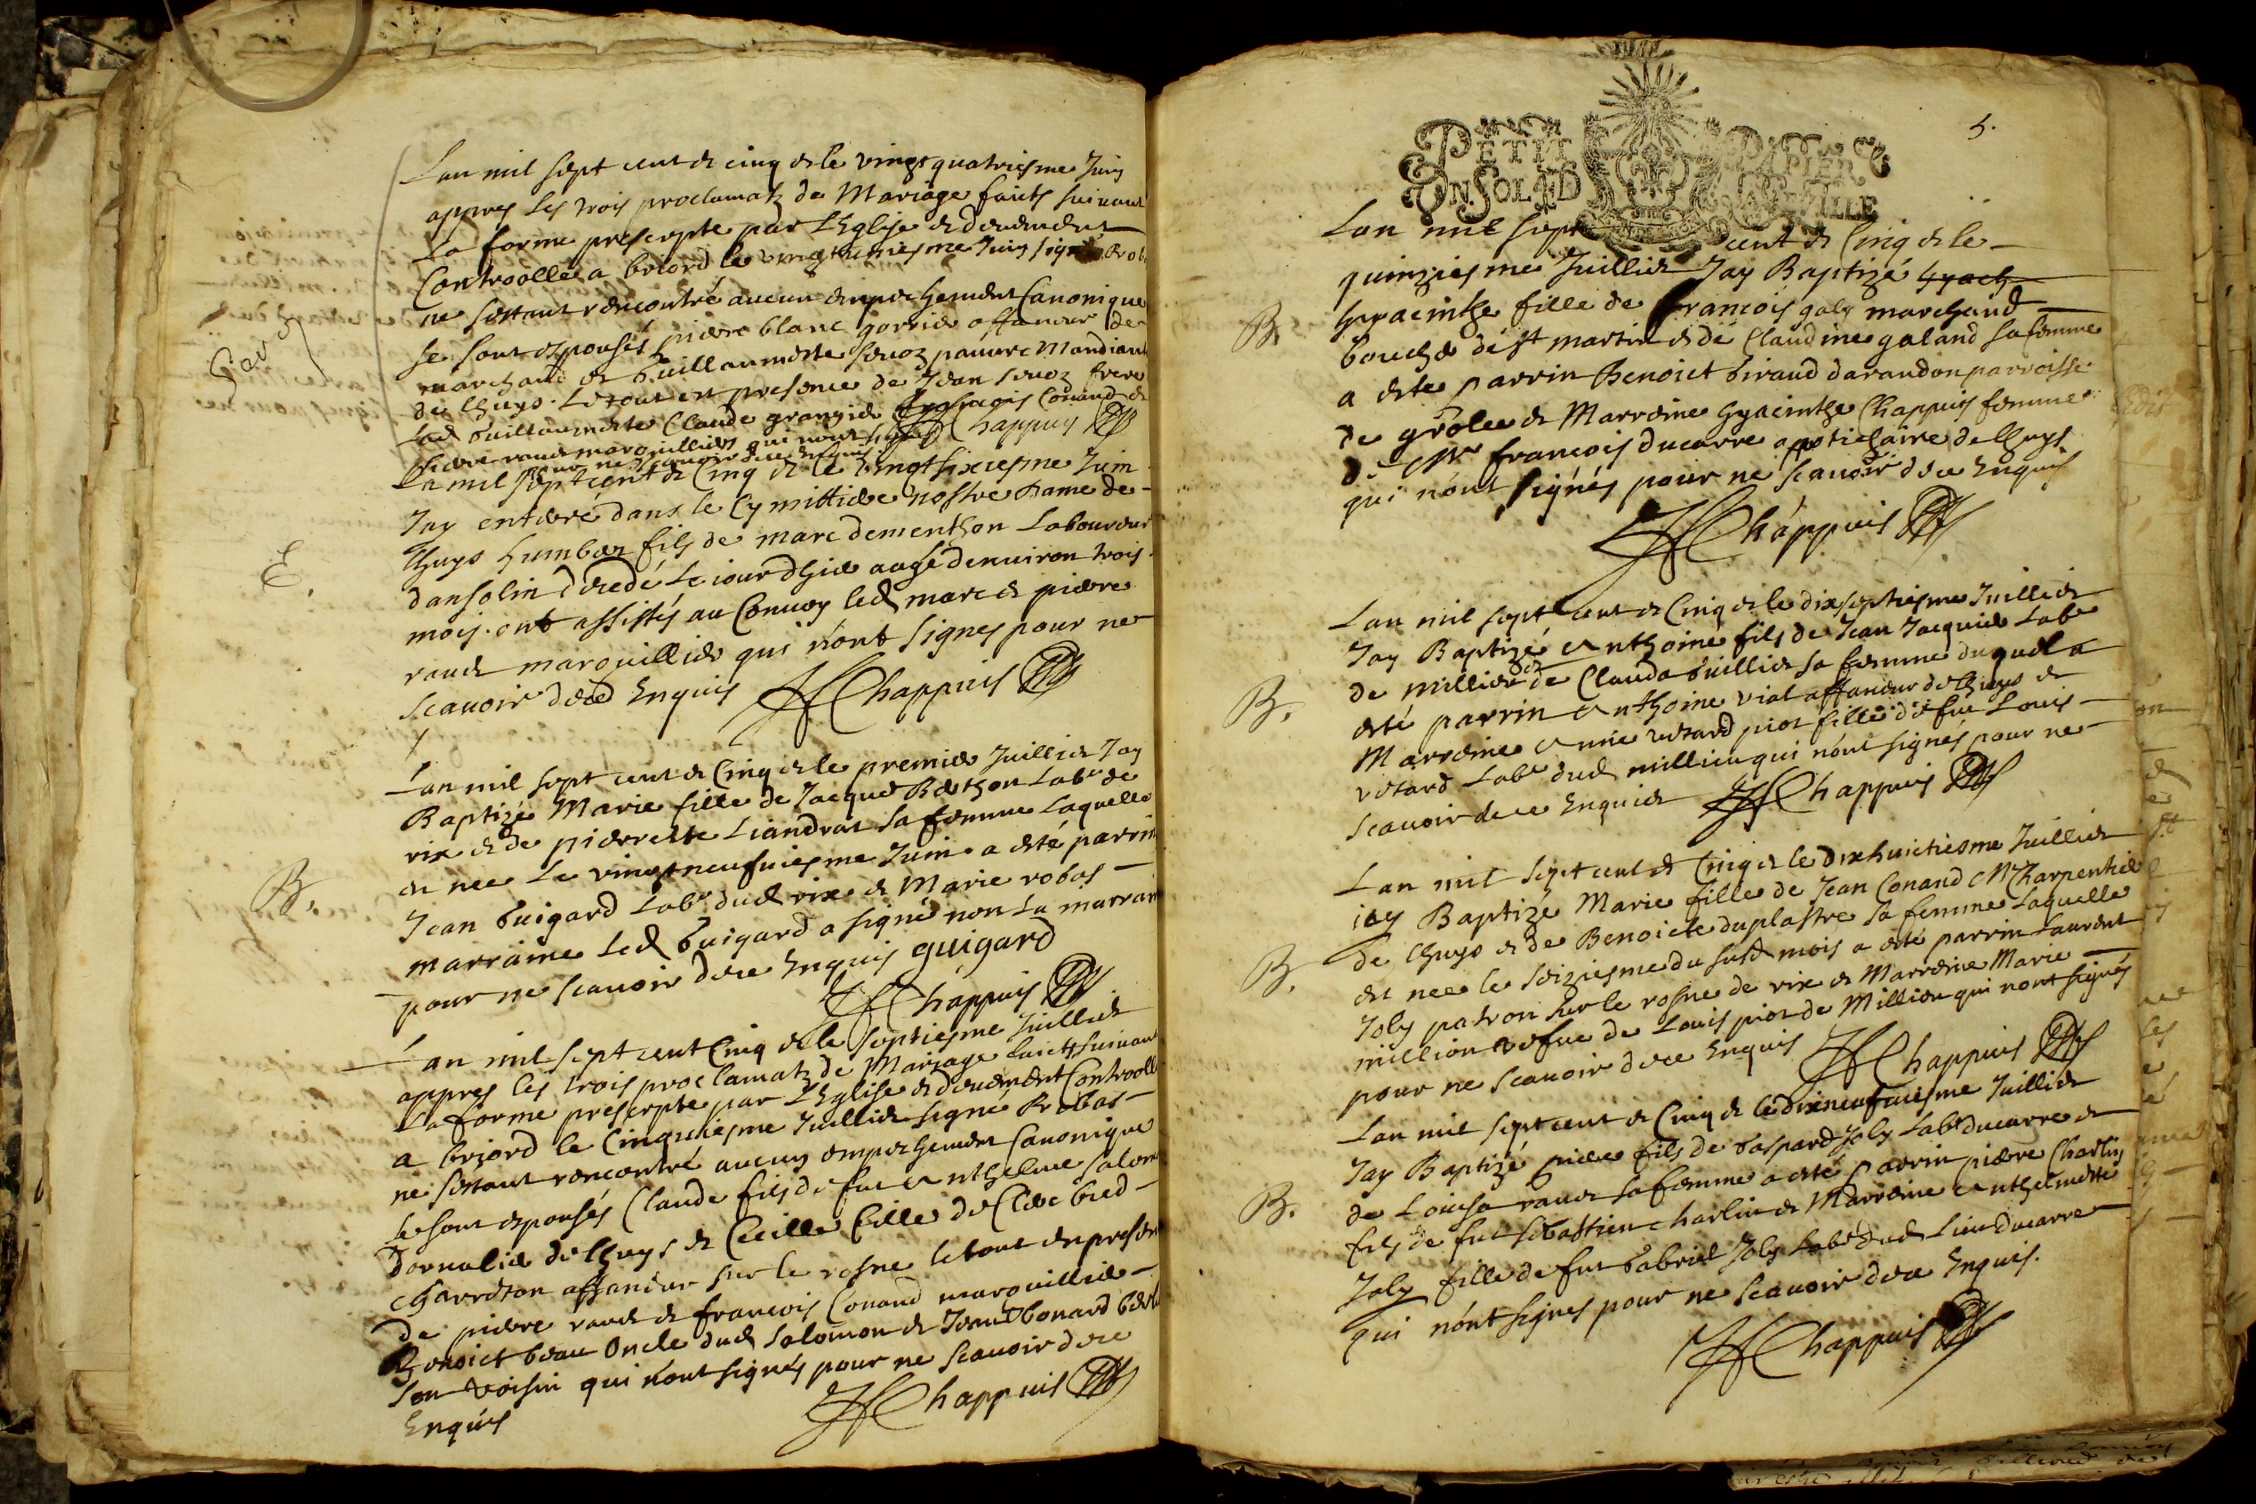 Lan mil sept cent & cinq & le vingt quatriesme Juin
appres les trois proclamatz de Mariage faicts suivant
La forme prescripte par LEglise & deuement
Controollé a briord le vingt Juin signé Rob
ne sestant rencontré aucun empechement Canonique
se sont espousés pierre blanc gorrier affaneur de
marchand et Guillaumette sevoz pauvre Mandiant
de Lhuys. Le tout en presence de Jean sevoz frere
Lad Guillaumette Claude grangier francois Conand &
pierre vaude marguillier qui nont signés
pour ne scauoir de ce Enquis Chappuis
Lan mil sept cent & Cinq & le vingt sixiesme Juin
Jay enteré dans le Cymittiere Nostre Dame de
E.
Lhuys humber fils de marc dementhon Laboureur
dansolin decedé Le jour dhier aagé denuiron trois
mois. ont assistés au Conuoy led marc & pierre
vaude marguillier qui nont signes pour ne
scauoir de ce Enquis Chappuis
Lan mil sept cent & Cinq & le premier Juillet Jay
Baptizé Marie fille de Jacque Berthon Labr de
rix & de pierrette Liandrat sa femme Laquelle
B.
est nee Le vingt neufuiesme Juin a esté parrin
Jean Guigard Labr dud rix & Marie robas
marraine Led Guigard a signé non La marraine
pour ne scauoir de ce Enquis guigard
Chappuis
Lan mil sept cent Cinq & le septiesme Juillet
appres les trois proclamatz de Mariage faicts suivant
La forme prescripte par LEglise & deuement Controollé
a briord le Cinquiesme Juillet signé Robas
ne sestant rencontré aucun empechement Canonique
se sont espousés Claude fils de feu Anthelme Salomon
Dornalie de Lhuys & Cecille fille de Clere bred
Charreton affaneur sur le rosne le tout en presence
de pierre vaude & francois Conand marguillier
Benoict beau Oncle dud Salomon & Jean bonard
son voisin qui nont signés pour ne scauoir de ce
Enquis Chappuis
5.
PETIT PAPIER
UN SOL LED LA FEVILLE
Lan mil sept cent & Cinq & le
quinziesme Juillet Jay Baptizé hyach
B.
hyacinthe fille de francois galy marchand
boucher de st martin & de Claudine galand sa femme
a esté parrin Benoict Giraud darandon parroisse
de grolee & Marreine hyacinthe Chappuis femme
de Mr francois ducarre appotichaire de Lhuys
qui nont signés pour ne scauoir de ce Enquis
Chappuis
Lan mil sept cent & Cinq & le dixseptiesme Juillet
Jay Baptizé Anthoine fils de Jean Jacquier Labr
de millieu & de Clauda Guillier sa femme duquel a
B.
esté parrin Anthoine viat affaneur de Lhuys &
Marreine Anne vetard piot fille de feu Louis
vetard Labr dud millieu qui nont signés pour ne
scauoir de ce Enquier Chappuis
Lan mil sept cent & Cinq & le dixhuictiesme Juillet
iay Baptizé Marie fille de Jean Conand Mr Charpentier
de Lhuys & de Benoicte duplastre sa femme Laquelle
B.
est nee le seiziesme du susd mois a esté parrin Laurent
Joly patron sur le rosne de rix & Marreine Marie
million vefue de Louis piot de Millieu qui nont signés
pour ne scauoir de ce Enquis Chappuis
Lan mil sept cent & Cinq & le dixneufuiesme Juillet
Jay Baptizé pierre fils de Gaspard Joly Labr ducarre &
B.
de Louisa vaude sa femme a esté parrin pierre Charlin
fils de feu sebastien charlin & Marreine Anthelmette
Joly fille de feu Gabriel Joly Labr dud Lieu ducarre
qui nont signes pour ne scauoir de ce Enquis.
Chappuis